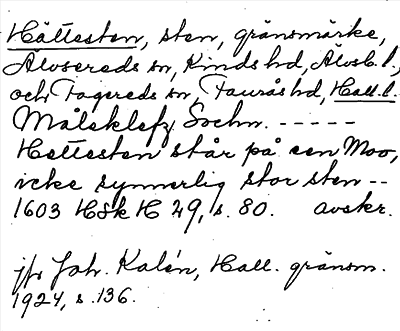 Hättesten, sten, gränsmärke,
Älvsereds sn, Kinds hd, Älvsb. l.,
och Fagereds sn, Faurås hd, Hall. l.
Målsklefz Sochn. -----
Hettesten står på een Moo,
icke synnerlig stor sten --
1603 HSk H 29, s. 80. avskr.
jfr Joh. Kalén, Hall. gränsm.
1924, s. 136.